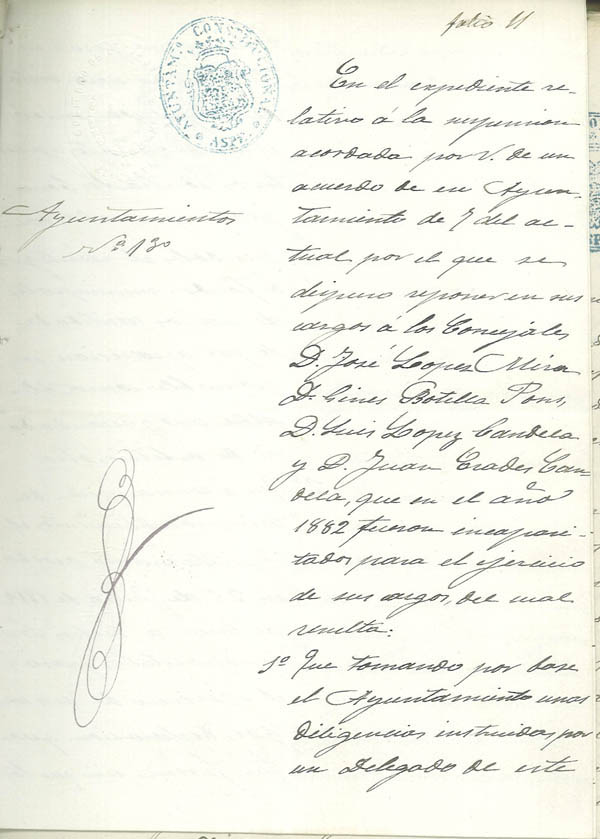 folio 11
AYUNTAM.º CONSTITUCIONAL
ASPE
Ayuntamientos
Nº 130
En el expediente re-
lativo á la suspension
acordada por V. de un
acuerdo de ese Ayun-
tamiento de 7 del ac-
tual por el que se
dispuso reponer en sus
cargos á los Concejales
D. José Lopez Mira
D. Gines Botella Pons,
D. Luis Lopez Candela
y D. Juan Erades Can-
dela, que en el año
1882 fueron incapaci-
tados para el ejercicio
de sus cargos, del cual
resulta:
1º Que tomando por base
el Ayuntamiento unas
diligencias instruidas por
un Delegado de este